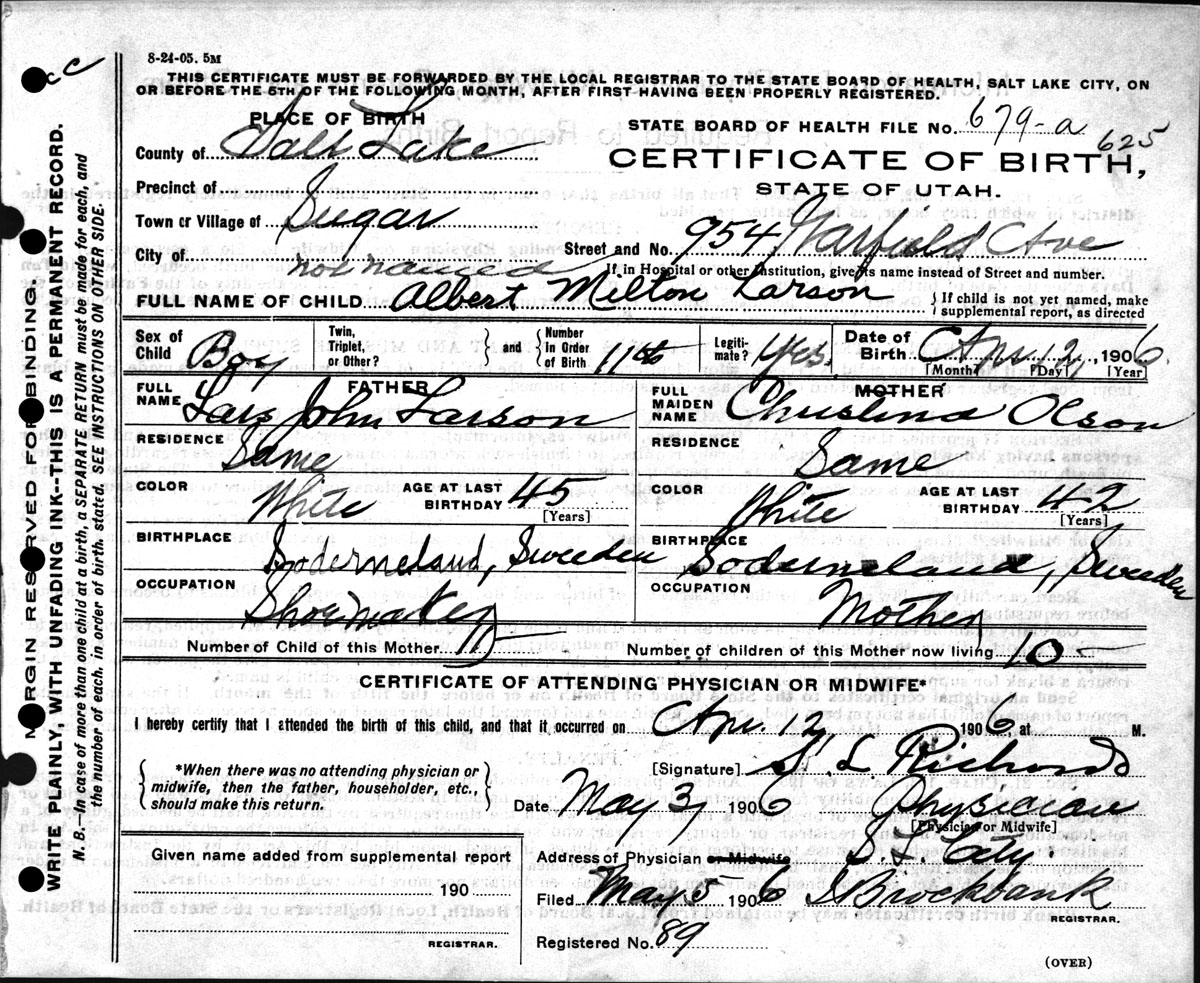 8-24-05. 5M
THIS CERTIFICATE MUST BE FORWARDED BY THE LOCAL REGISTRAR TO THE STATE BOARD OF HEALTH, SALT LAKE CITY, ON
OR BEFORE THE 5TH OF THE FOLLOWING MONTH, AFTER FIRST HAVING BEEN PROPERLY REGISTERED.
PLACE OF BIRTH
STATE BOARD OF HEALTH FILE No. 679-a 625
County of Salt Lake
CERTIFICATE OF BIRTH,
STATE OF UTAH.
Precinct of
Town or Village of Sugar
Street and No. 954 Garfield Ave
City of
If in Hospital or other Institution, give its name instead of Street and number.
not named
FULL NAME OF CHILD Albert Milton Larson
If child is not yet named, make
supplemental report, as directed
Sex of Child Boy
Twin, Triplet, or Other?
and
Number In Order of Birth 11th
Legiti-mate? Yes
Date of Birth Apr 12, 1906
[Month] [Day] [Year]
FATHER
FULL NAME Lars John Larson
MOTHER
FULL MAIDEN NAME Christina Olson
RESIDENCE Same
RESIDENCE Same
COLOR White AGE AT LAST BIRTHDAY 45
[Years]
COLOR White AGE AT LAST BIRTHDAY 42
[Years]
BIRTHPLACE Soderneland, Sweden
BIRTHPLACE Soderneland, Sweden
OCCUPATION Shoemaker
OCCUPATION Mother
Number of Child of this Mother 11
Number of children of this Mother now living 10
CERTIFICATE OF ATTENDING PHYSICIAN OR MIDWIFE*
I hereby certify that I attended the birth of this child, and that it occurred on Apr. 12 1906, at M.
*When there was no attending physician or
midwife, then the father, householder, etc.,
should make this return.
[Signature] S. L. Richards
Date May 3, 1906 Physician
[Physician or Midwife]
Given name added from supplemental report
190
REGISTRAR.
Address of Physician or Midwife S. L. City.
Filed May 5 1906 Brockbank
REGISTRAR.
Registered No. 89
(OVER)
MARGIN RESERVED FOR BINDING.
WRITE PLAINLY, WITH UNFADING INK--THIS IS A PERMANENT RECORD.
N. B.—In case of more than one child at a birth, a SEPARATE RETURN must be made for each, and
the number of each, in order of birth, stated. SEE INSTRUCTIONS ON OTHER SIDE.